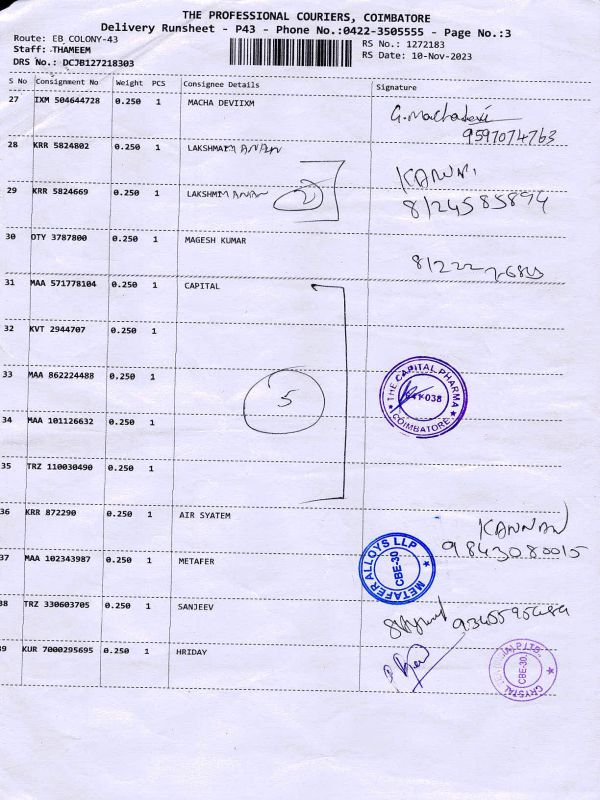 THE PROFESSIONAL COURIERS, COIMBATORE
Delivery Runsheet - P43 - Phone No.:0422-3505555 - Page No.:3
Route: EB COLONY-43
Staff: THAMEEM
DRS No.: DCJB127218303
RS No.: 1272183
RS Date: 10-Nov-2023
S No Consignment No Weight PCS Consignee Details Signature
27 IXM 504644728 0.250 1 MACHA DEVIIXM
G.Machadevi
9597074763
28 KRR 5824802 0.250 1 LAKSHMAN
29 KRR 5824669 0.250 1 LAKSHMI
2
KANNAN
8124585894
30 OTY 3787800 0.250 1 MAGESH KUMAR
31 MAA 571778104 0.250 1 CAPITAL
32 KVT 2944707 0.250 1
33 MAA 862224488 0.250 1
5
THE CAPITAL PHARMA
COIMBATORE
34 MAA 101126632 0.250 1
35 TRZ 110030490 0.250 1
36 KRR 872290 0.250 1 AIR SYATEM
KANNAN
9843080015
37 MAA 102343987 0.250 1 METAFER
METAFER ALLOYS LLP
CBE-30
38 TRZ 330603705 0.250 1 SANJEEV
39 KUR 7000295695 0.250 1 HRIDAY
CRYSTAL
CBE-30